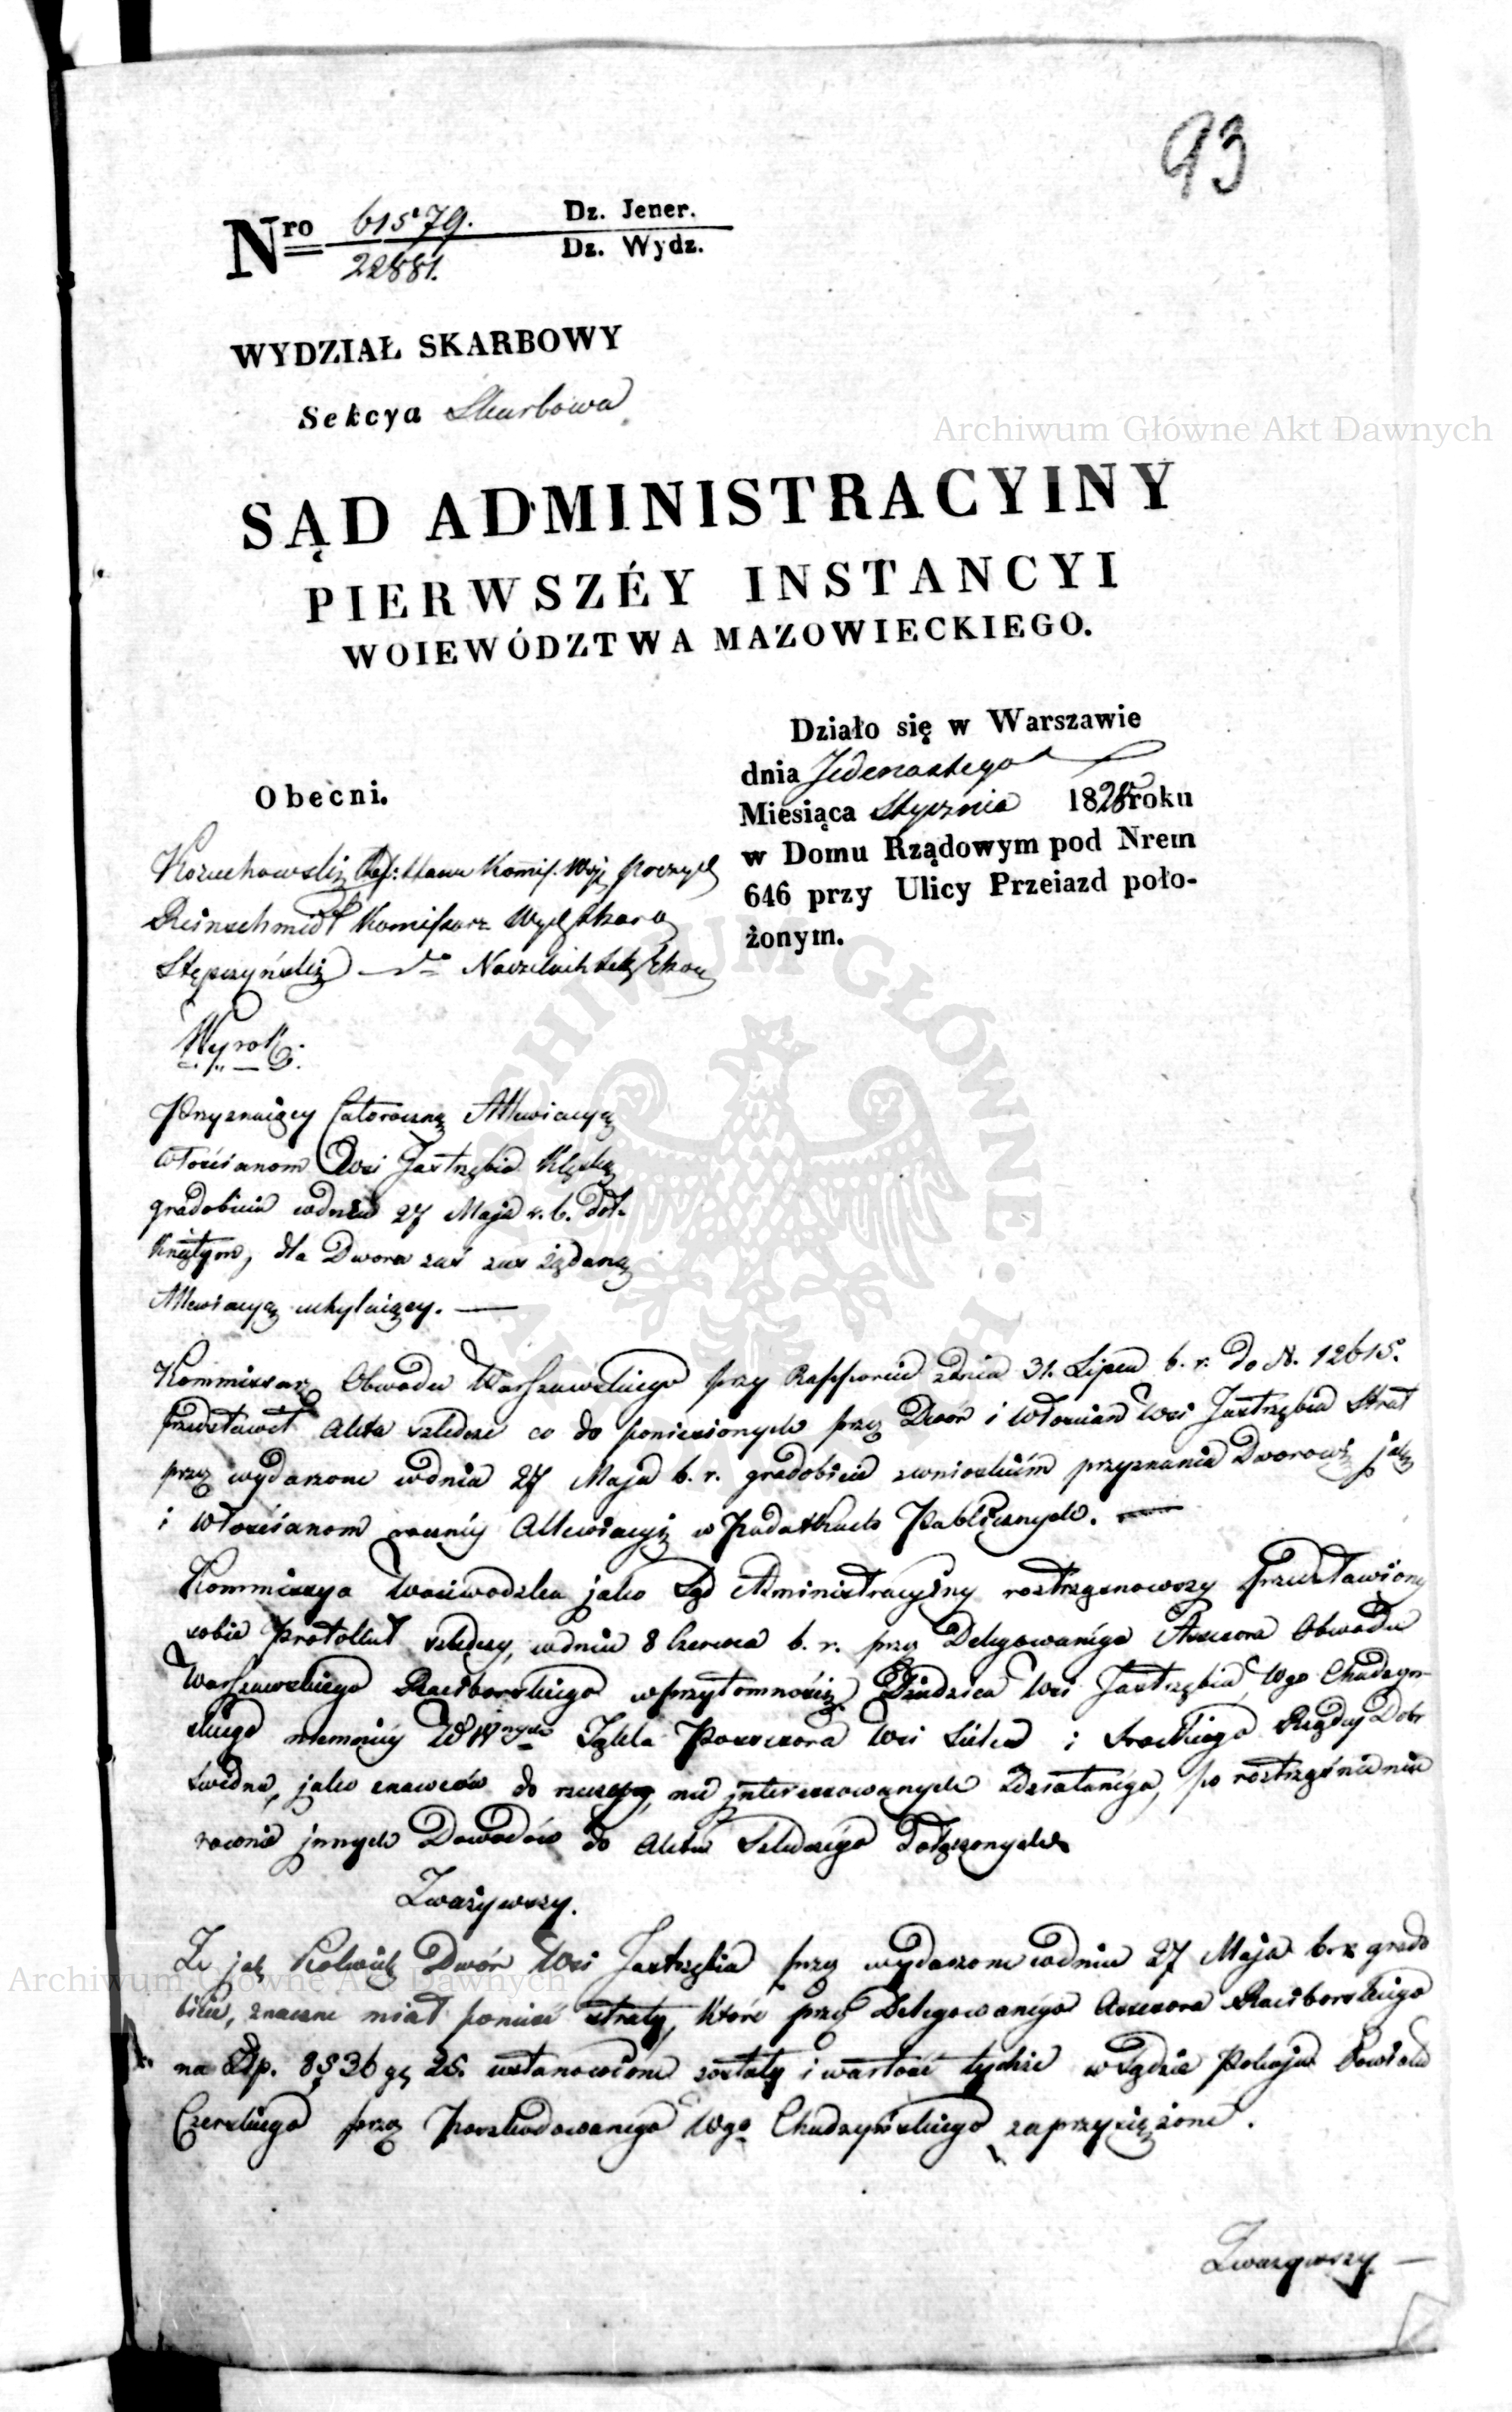 93
Nro 61579. Dz. Jener.
22881. Dz. Wydz.
WYDZIAŁ SKARBOWY
Sekcya Skarbowa
Archiwum Główne Akt Dawnych
SĄD ADMINISTRACYINY
PIERWSZÉY INSTANCYI
WOIEWÓDZTWA MAZOWIECKIEGO.
Działo się w Warszawie
dnia Jedenastego
Miesiąca Stycznia 1828 roku
w Domu Rządowym pod Nrem
646 przy Ulicy Przeiazd poło-
żonym.
Obecni.
Kożuchowski Stanu Kommis. Woj.
Reinschmidt Kommissarz Wydz. Skarb
Stępczyński do Naczelnik Sek. Skar
Wyrok.
Przyznaiący Całoroczną Allewiacyą
Włościanom Wsi Jastrzębia Klęską
gradobicia w dniu 27 Maja r. b. dot-
kniętym, dla Dworu zaś żądaną
Allewiacyą uchylaiący. —
Kommissarz Obwodu Warszawskiego przy Rapporcie z dnia 31. Lipca b. r. do N. 12615.
przedstawił Akta śledcze co do poniesionych przez Dwór i Włościan Wsi Jastrzębia Strat
przez wydarzone w dniu 27 Maja b. r. gradobicie z wnioskiem przyznania Dworowi jak
i Włościanom roczniej Allewiacyi w Podatkach Publicznych. —
Kommissya Woiewódzka jako Sąd Administracyiny roztrząsnąwszy przedstawiony
sobie Protokuł śledczy, w dniu 8 Czerwca b. r. przez Delegowanego Assessora Obwodu
Warszawskiego Raciborskiego w przytomności Dziedzica Wsi Jastrzębia Wgo Chudzyń-
skiego niemniéy WWnych Possessora Wsi i Rządcy Dóbr
jako znawców do rzeczy nie interessowanych zdziałanego, po roztrząśnieniu
równie innych Dowodów do Aktu Śledczego dołączonych
Zważywszy.
Że jak Kolwiek Dwór Wsi Jastrzębia przez wydarzone w dniu 27 Maja b. r. grado
Archiwum Główne Akt Dawnych
bicie, znaczne miał ponieść straty, które przez Delegowanego Assessora Raciborskiego
na Złp. 8536 gr. 25. ustanowione zostały i wartość tychże w Sądzie Pokoju Powiatu
Czerskiego przez Poszkodowanego Wgo Chudzyńskiego zaprzysiężone.
Zważywszy —
ARCHIWUM GŁÓWNE